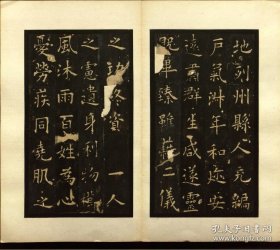 地列州縣人充編
戶氣淑年和迩安
遠肅群生咸遂靈
貺畢臻雖藉二儀
之功終資 一人
之慮遺身利物櫛
風沐雨百姓為心
憂勞疾同堯肌之
孔夫子旧书网